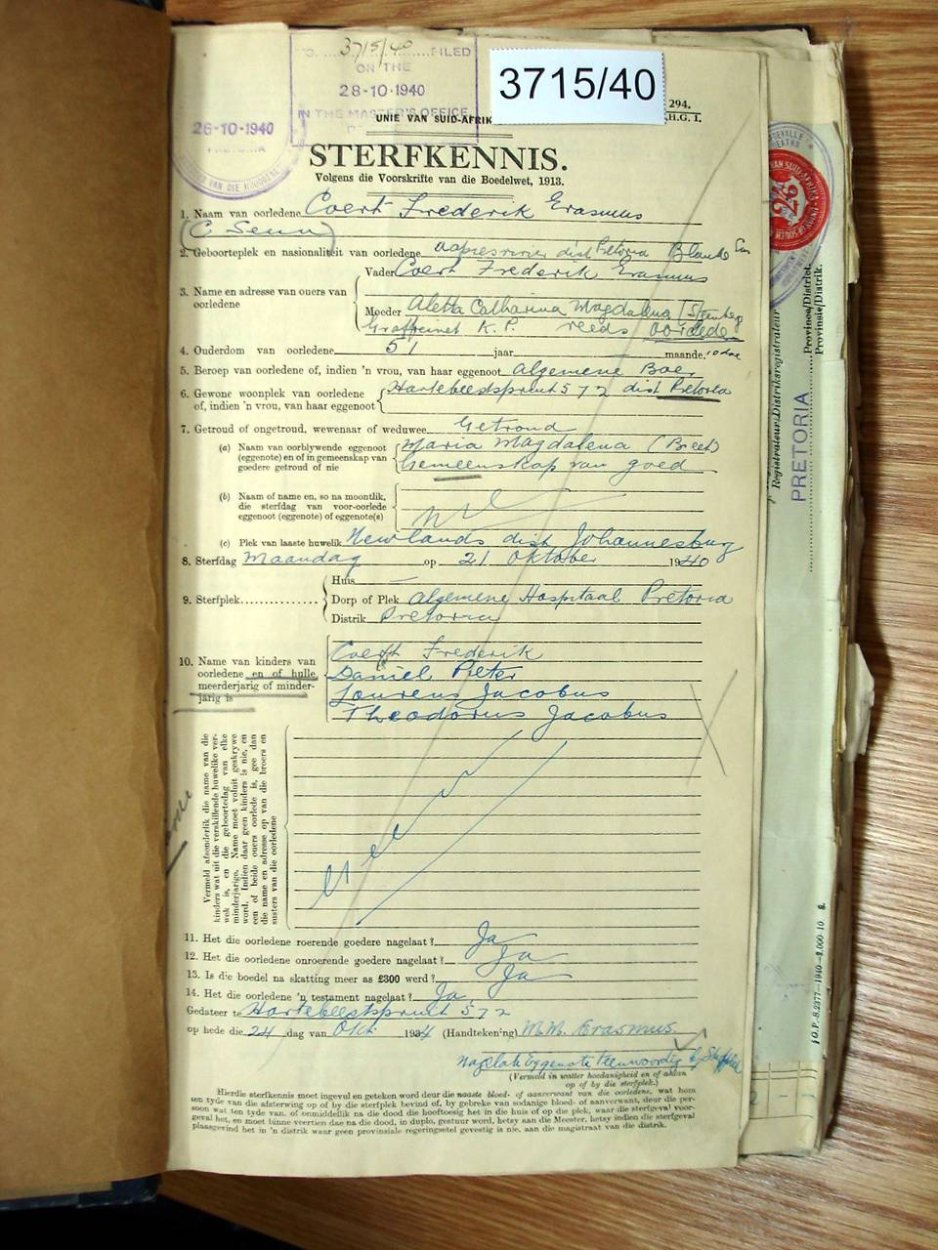 3715/40 FILED
ON THE
28-10-1940
IN THE MASTER'S OFFICE
3715/40
26-10-1940
294.
H.G. I.
UNIE VAN SUID-AFRIK
STERFKENNIS.
Volgens die Voorskrifte van die Boedelwet, 1913.
1. Naam van oorledene Coert Frederik Erasmus
(C Senr)
2. Geboorteplek en nasionaliteit van oorledene aapiesrivier dist Pretoria Blanke
Vader Coert Frederik Erasmus
3. Name en adresse van ouers van oorledene
Moeder Aletta Catharina Magdalena
Graffreinet K.P. reeds oorlede
4. Ouderdom van oorledene 51 jaar maande. 10 dae
5. Beroep van oorledene of, indien 'n vrou, van haar eggenoot algemene Boer
6. Gewone woonplek van oorledene Hartebeestspruit 572 dist Pretoria
of, indien 'n vrou, van haar eggenoot
7. Getroud of ongetroud, wewenaar of weduwee Getroud
(a) Naam van oorblywende eggenoot Maria Magdalena (Breet)
(eggenote) en of in gemeenskap van Gemeenskap van goed
goedere getroud of nie
(b) Naam of name en, so na moontlik,
die sterfdag van voor-oorlede
eggenoot (eggenote) of eggenote(s) nil
(c) Plek van laaste huwelik Newlands dist Johannesburg
8. Sterfdag Maandag op 21 Oktober 1940
Huis
9. Sterfplek Dorp of Plek Algemene Hospitaal Pretoria
Distrik Pretoria
10. Name van kinders van Coert Frederik
oorledene en of hulle Daniel Pieter
meerderjarig of minder- Lourens Jacobus
jarig is Theodorus Jacobus
Vermeld afsonderlik die name van die
kinders wat uit die verskillende huwelike ver-
wek is, en die geboortedag van elke
minderjarige. Name moet voluit geskrywe
word. Indien daar geen kinders is nie, en
een of beide ouers oorlede is, gee dan
die name en adresse op van die broers en
susters van die oorledene
11. Het die oorledene roerende goedere nagelaat? Ja
12. Het die oorledene onroerende goedere nagelaat? Ja
13. Is die boedel na skatting meer as £300 werd? Ja
14. Het die oorledene 'n testament nagelaat? Ja
Gedateer te Hartebeestspruit 572
op hede die 24 dag van Okt 1934 (Handtekening) M.M. Erasmus
Nagelate Eggenote Teenwoordig by Sterfplek
(Vermeld in watter hoedanigheid en of aldan
op of by die sterfplek.)
Hierdie sterfkennis moet ingevul en geteken word deur die naaste bloed- of aanverwant van die oorledene, wat hom
ten tyde van die afsterwing op of by die sterfplek bevind of, by gebreke van sodanige bloed- of aanverwant, deur die per-
soon wat ten tyde van, of onmiddellik na die dood die hooftoesig het in die huis of op die plek, waar die sterfgeval voor-
geval het, en moet binne veertien dae na die dood, in duplo, gestuur word, hetsy aan die Meester, hetsy indien die sterfgeval
plaasgevind het in 'n distrik waar geen provinsiale regeringsetel gevestig is nie, aan die magistraat van die distrik.
Registrateur/Distriksregistrateur
PRETORIA
Province/District.
Provinsie/Distrik.
G.P.-S.2377—1940—2,000-10. S.